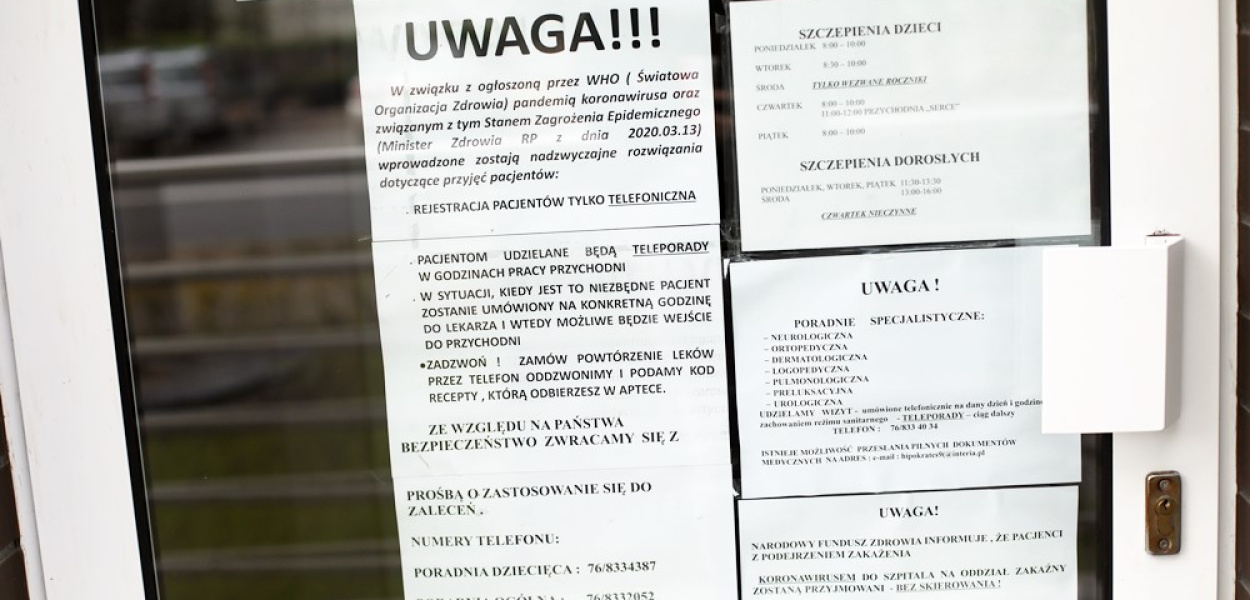 UWAGA!!!
W związku z ogłoszoną przez WHO ( Światowa
Organizacja Zdrowia) pandemią koronawirusa oraz
związanym z tym Stanem Zagrożenia Epidemicznego
(Minister Zdrowia RP z dnia 2020.03.13)
wprowadzone zostają nadzwyczajne rozwiązania
dotyczące przyjęć pacjentów:
. REJESTRACJA PACJENTÓW TYLKO TELEFONICZNA
. PACJENTOM UDZIELANE BĘDĄ TELEPORADY
W GODZINACH PRACY PRZYCHODNI
. W SYTUACJI, KIEDY JEST TO NIEZBĘDNE PACJENT
ZOSTANIE UMÓWIONY NA KONKRETNĄ GODZINĘ
DO LEKARZA I WTEDY MOŻLIWE BĘDZIE WEJŚCIE
DO PRZYCHODNI
•ZADZWOŃ ! ZAMÓW POWTÓRZENIE LEKÓW
PRZEZ TELEFON ODDZWONIMY I PODAMY KOD
RECEPTY , KTÓRĄ ODBIERZESZ W APTECE.
ZE WZGLĘDU NA PAŃSTWA
BEZPIECZEŃSTWO ZWRACAMY SIĘ Z
PROŚBĄ O ZASTOSOWANIE SIĘ DO
ZALECEŃ .
NUMERY TELEFONU:
PORADNIA DZIECIĘCA : 76/8334387
PORADNIA OGÓLNA : 76/8332052
SZCZEPIENIA DZIECI
PONIEDZIAŁEK 8:00 – 10:00
WTOREK 8:30 – 10:00
ŚRODA TYLKO WEZWANE ROCZNIKI
CZWARTEK 8:00 – 10:00
11:00-12:00 PRZYCHODNIA „SERCE"
PIĄTEK 8:00 – 10:00
SZCZEPIENIA DOROSŁYCH
PONIEDZIAŁEK, WTOREK, PIĄTEK 11:30-13:30
ŚRODA 13:00-16:00
CZWARTEK NIECZYNNE
UWAGA !
PORADNIE SPECJALISTYCZNE:
– NEUROLOGICZNA
– ORTOPEDYCZNA
– DERMATOLOGICZNA
– LOGOPEDYCZNA
– PULMONOLOGICZNA
– PRELUKSACYJNA
– UROLOGICZNA
UDZIELAMY WIZYT - umówione telefonicznie na dany dzień i godzinę
zachowaniem reżimu sanitarnego - TELEPORADY – ciąg dalszy
TELEFON : 76/833 40 34
ISTNIEJE MOŻLIWOŚĆ PRZESŁANIA PILNYCH DOKUMENTÓW
MEDYCZNYCH NA ADRES : e-mail : hipokrates9(@interia.pl
UWAGA!
NARODOWY FUNDUSZ ZDROWIA INFORMUJE , ŻE PACJENCI
Z PODEJRZENIEM ZAKAŻENIA
KORONAWIRUSEM DO SZPITALA NA ODDZIAŁ ZAKAŹNY
ZOSTANĄ PRZYJMOWANI - BEZ SKIEROWANIA !